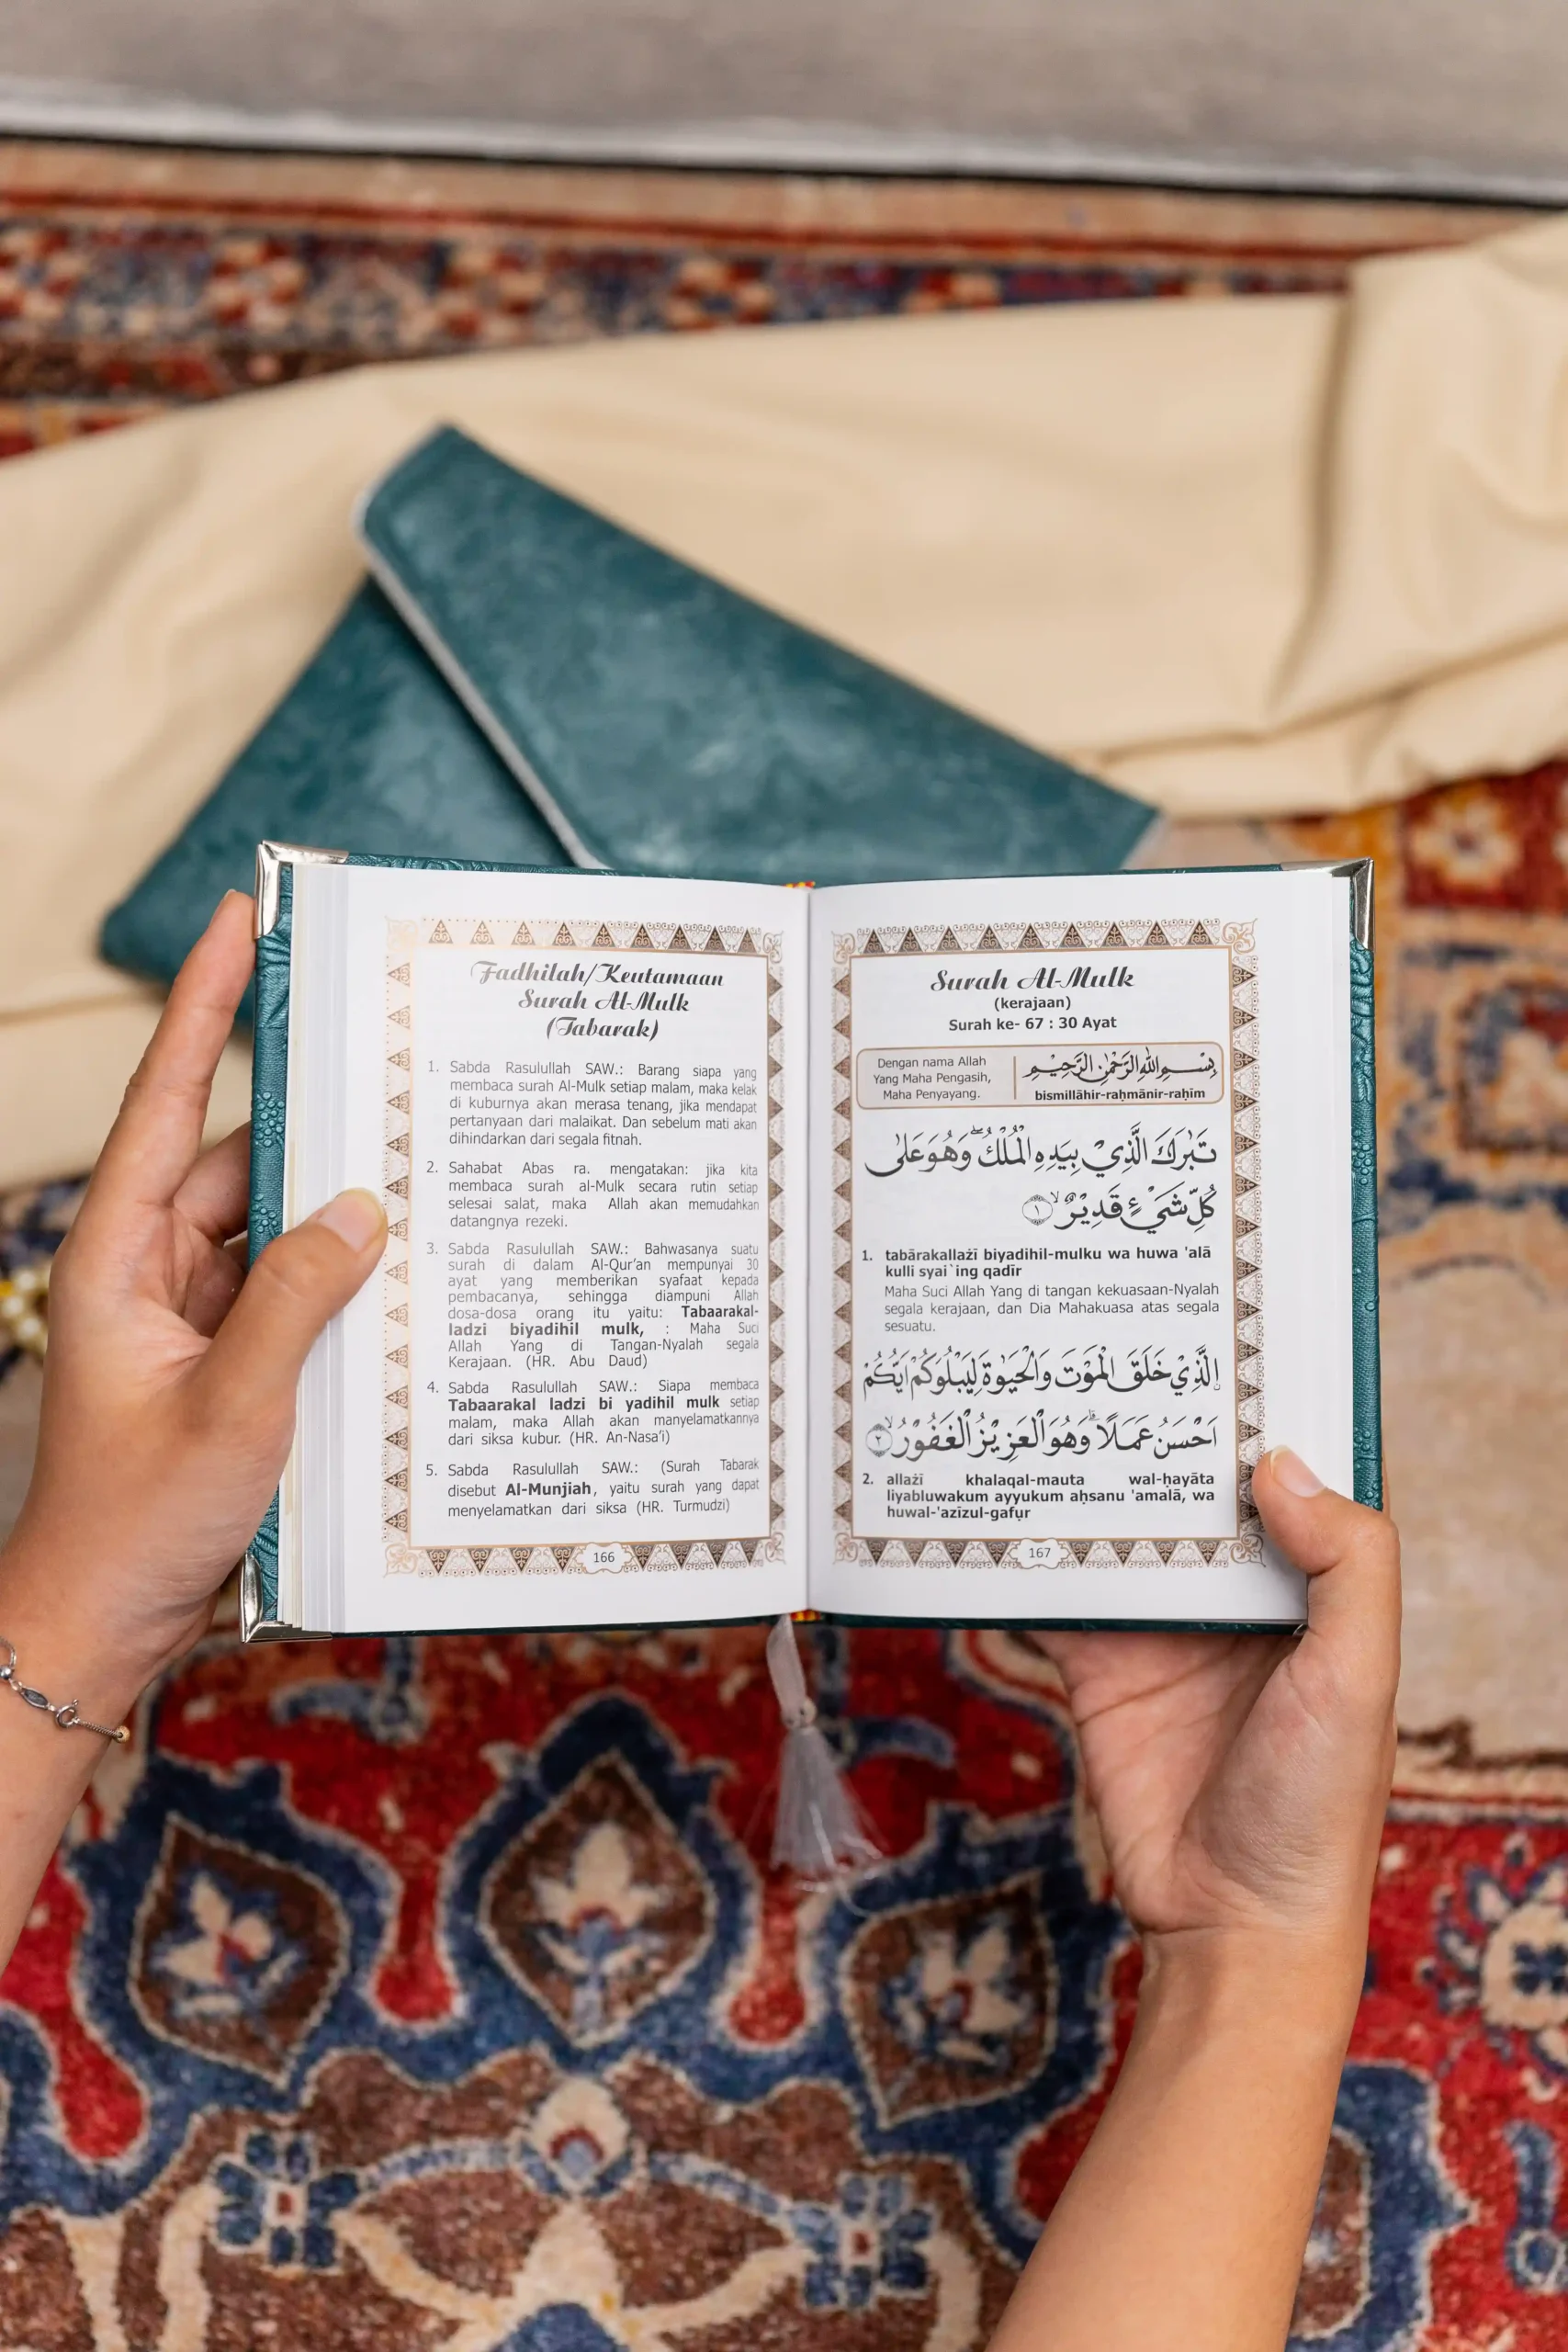 Fadhilah/Keutamaan
Surah Al-Mulk
(Tabarak)
1. Sabda Rasulullah SAW.: Barang siapa yang
membaca surah Al-Mulk setiap malam, maka kelak
di kuburnya akan merasa tenang, jika mendapat
pertanyaan dari malaikat. Dan sebelum mati akan
dihindarkan dari segala fitnah.
2. Sahabat Abas ra. mengatakan: jika kita
membaca surah al-Mulk secara rutin setiap
selesai salat, maka Allah akan memudahkan
datangnya rezeki.
3. Sabda Rasulullah SAW.: Bahwasanya suatu
surah di dalam Al-Qur'an mempunyai 30
ayat yang memberikan syafaat kepada
pembacanya, sehingga diampuni Allah
dosa-dosa orang itu yaitu: Tabaarakal-
ladzi biyadihil mulk, : Maha Suci
Allah Yang di Tangan-Nyalah segala
Kerajaan. (HR. Abu Daud)
4. Sabda Rasulullah SAW.: Siapa membaca
Tabaarakal ladzi bi yadihil mulk setiap
malam, maka Allah akan manyelamatkannya
dari siksa kubur. (HR. An-Nasa'i)
5. Sabda Rasulullah SAW.: (Surah Tabarak
disebut Al-Munjiah, yaitu surah yang dapat
menyelamatkan dari siksa (HR. Turmudzi)
166
Surah Al-Mulk
(kerajaan)
Surah ke- 67 : 30 Ayat
Dengan nama Allah
Yang Maha Pengasih,
Maha Penyayang.
بِسْمِ اللّٰهِ الرَّحْمٰنِ الرَّحِيْمِ
bismillāhir-raḥmānir-raḥīm
تَبٰرَكَ الَّذِيْ بِيَدِهِ الْمُلْكُۖ وَهُوَ عَلٰى
كُلِّ شَيْءٍ قَدِيْرٌۙ ١
1. tabārakallażī biyadihil-mulku wa huwa 'alā
kulli syai`ing qadīr
Maha Suci Allah Yang di tangan kekuasaan-Nyalah
segala kerajaan, dan Dia Mahakuasa atas segala
sesuatu.
اِلَّذِيْ خَلَقَ الْمَوْتَ وَالْحَيٰوةَ لِيَبْلُوَكُمْ اَيُّكُمْ
اَحْسَنُ عَمَلًاۗ وَهُوَ الْعَزِيْزُ الْغَفُوْرُۙ ٢
2. allażī khalaqal-mauta wal-ḥayāta
liyabluwakum ayyukum aḥsanu 'amalā, wa
huwal-'azīzul-gafụr
167